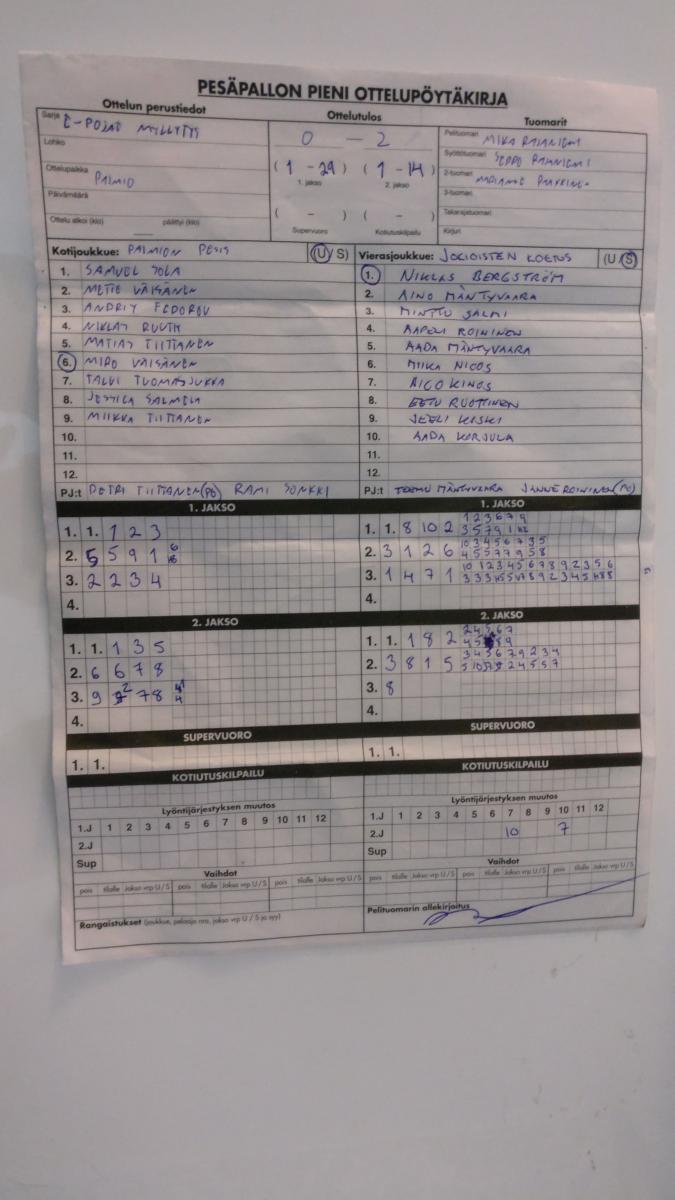 PESÄPALLON PIENI OTTELUPÖYTÄKIRJA
Ottelun perustiedot Ottelutulos Tuomarit
Sarja E-POJAT MYLLYTYS
Lohko
Ottelupaikka PAIMIO
Päivämäärä
Ottelu alkoi (klo) päättyi (klo)
0 - 2
(1 - 29) (1 - 14)
1. jakso 2. jakso
( - ) ( - )
Supervuoro Kotiutuskilpailu
Pelituomari MIKA RAJANIEMI
Syöttötuomari SEPPO RAJANIEMI
2-tuomari MARIANNE
3-tuomari
Takarajatuomari
Kirjuri
Kotijoukkue: PAIMION PESIS (U/S)
1. SAMUEL SOLA
2. METTE VÄISÄNEN
3. ANDRIY FEDOROV
4. NIKLAS RUUTH
5. MATIAS TIITTANEN
6. MIRO VÄISÄNEN
7. TALVI TUOMASJUKKA
8. JESSICA SALMELA
9. MIIKKA TIITTANEN
10.
11.
12.
PJ:t PETRI TIITTANEN (PÖ) RAMI SONKKI
Vierasjoukkue: JOKIOISTEN KOETUS (U/S)
1. NIKLAS BERGSTRÖM
2. AINO MÄNTYVAARA
3. MINTTU SALMI
4. AAPELI ROININEN
5. AADA MÄNTYVAARA
6. MIIKA NIGOS
7. AIGO KINOS
8. EETU RUOTTINEN
9. JEELI KISKI
10. AADA KORJULA
11.
12.
PJ:t TEEMU MÄNTYVAARA JANNE ROININEN (PÖ)
1. JAKSO
1. 1. 1 2 3
2. 5 5 9 1 6
3. 2 2 3 4
4.
2. JAKSO
1. 1. 1 3 5
2. 6 6 7 8
3. 9 2 7 8
4.
SUPERVUORO
1. 1.
KOTIUTUSKILPAILU
1. JAKSO
1 2 3 6 7 9
1. 1. 8 10 2 3 5 7 9 1
10 3 4 5 6 7 3 5
2. 3 1 2 6 4 5 5 7 7 9 5 8
10 1 2 3 4 5 6 7 8 9 2 3 5 6
3. 1 4 7 1
4.
2. JAKSO
2 4 5 6 7
1. 1. 1 8 2
3 4 5 6 7 9 2 3 4
2. 3 8 1 5
3. 8
4.
SUPERVUORO
1. 1.
KOTIUTUSKILPAILU
Lyöntijärjestyksen muutos
1.J 1 2 3 4 5 6 7 8 9 10 11 12
2.J
Sup
Vaihdot
pois tilalle Jakso vrp U / S pois tilalle Jakso vrp U / S pois tilalle Jakso vrp U / S
Rangaistukset (joukkue, pelaaja nro, jakso vrp U / S ja syy)
Lyöntijärjestyksen muutos
1.J 1 2 3 4 5 6 7 8 9 10 11 12
2.J 10 7
Sup
Vaihdot
pois tilalle Jakso vrp U / S pois tilalle Jakso vrp U / S pois tilalle Jakso vrp U / S
Pelituomarin allekirjoitus